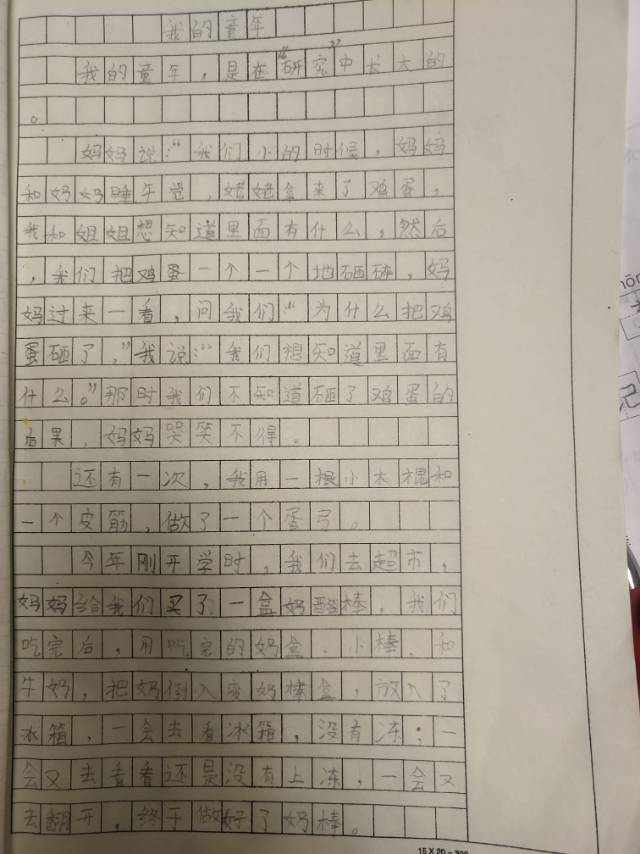 我的童年
我的童年，是在“研究”中长大的
。
妈妈说：“我们小的时候，妈妈
和奶奶睡午觉，姥姥拿来了鸡蛋，
我和姐姐想知道里面有什么，然后
，我们把鸡蛋一个一个地砸碎，妈
妈过来一看，问我们“为什么把鸡
蛋砸了，”我说：“我们想知道里面有
什么。”那时我们不知道砸了鸡蛋的
后果，妈妈哭笑不得。
还有一次，我用一根小木棍和
一个皮筋，做了一个蛋弓。
今年刚开学时，我们去超市，
妈妈给我们买了一盒奶酪棒，我们
吃完后，用吃完的奶盒、小棒、和
牛奶，把奶倒入奶棒盒，放入了
冰箱，一会去看冰箱，没有冻；一
会又去看看还是没有上冻，一会又
去翻开，终于做好了奶棒。
15×20=300